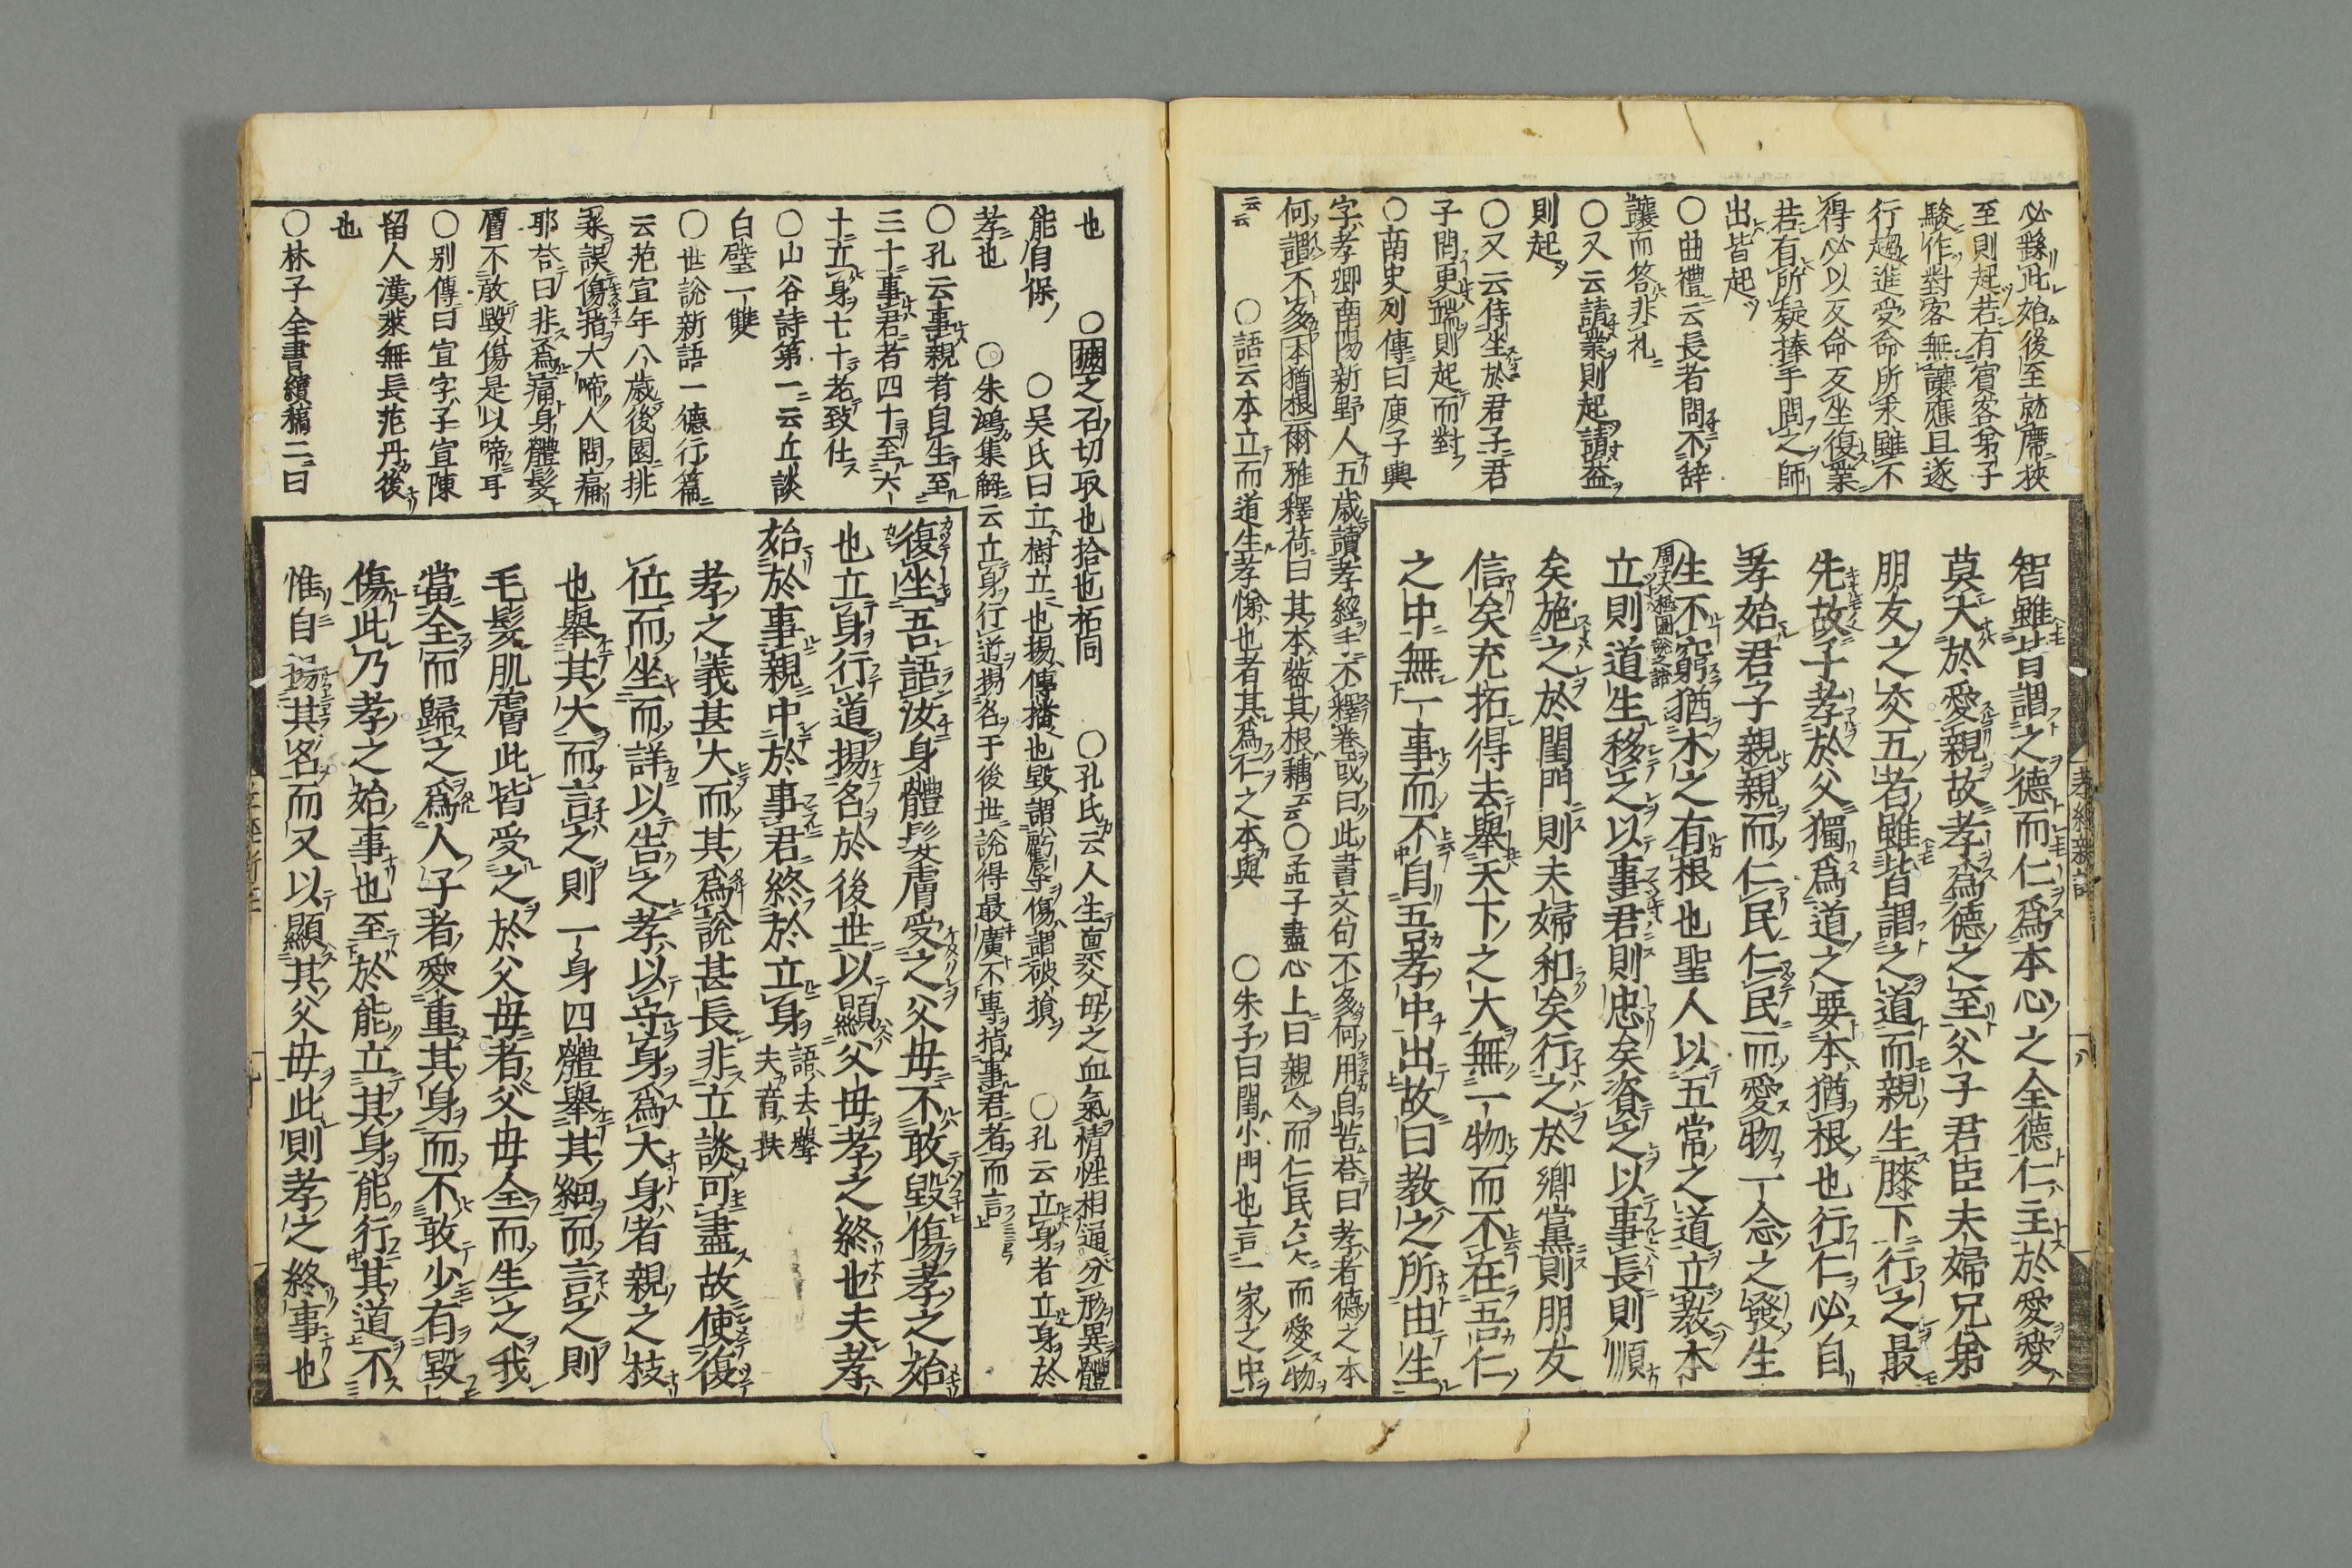 必繇此始後至就席挾
至則起若有賓客弟子
駿作對客無讓應且遂
行趨進受命所求雖不
得必以反命反坐復業
若有所疑捧手問之師
出皆起
〇曲禮云長者問不辞
讓而答非礼
〇又云請業則起請益
則起
〇又云侍坐於君子君
子問更端則起而對
〇南史列傳曰庾子輿
字孝卿南陽新野人五歳讀孝經手不釋卷或曰此書文句不多何用自苦荅曰孝者德之本
何謂不多本猶根爾雅釋荷曰其本蔤其根藕云云〇孟子盡心上曰親〻而仁民〻〻而愛物
云云 〇語云本立而道生孝悌也者其爲仁之本與 〇朱子曰閨小門也言一家之中
智雖皆謂之德而仁爲本心之全德仁主於愛愛
莫大於愛親故孝爲德之至父子君臣夫婦兄弟
朋友之交五者雖皆謂之道而親生膝下行之最
先故子孝於父獨爲道之要本猶根也行仁必自
孝始君子親親而仁民仁民而愛物一念之發生
生不窮猶木之有根也聖人以五常之道立教本
周子大極圖說之語
立則道生移之以事君則忠矣資之以事長則順
矣施之於閨門則夫婦和矣行之於鄉黨則朋友
信矣充拓得去舉天下之大無一物而不在吾仁
之中無一事而不自吾孝中出故曰教之所由生
孝經新註
也 〇摭之石切取也拾也柘同 〇孔氏云人生禀父毋之血氣情性相通分形異體
能自保 〇吴氏曰立樹立也揚傳播也毀謂虧辱傷謂破損 〇孔云立身者立身於
孝也 〇朱鴻集解云立身行道揚名于後世說得最廣不專指事君者而言
〇孔云事親者自生至
三十事君者四十至六
十立身七十老致仕
〇山谷詩第一云丘談
白璧一雙
〇世說新語一德行篇
云范宣年八歲後園挑
菜誤傷指大啼人問痛
耶荅曰非爲痛身體髮
膚不敢毀傷是以啼耳
〇別傳曰宣字子宣陳
留人漢萊無長范丹後
也
〇林子全書續稿二曰
復坐吾語汝身體髮膚受之父毋不敢毀傷孝之始
也立身行道揚名於後世以顯父毋孝之終也夫孝
始於事親中於事君終於立身
語去聲
夫音扶
孝之義甚大而其爲說甚長非立談可盡故使復
位而坐而詳以告之孝以守身爲大身者親之枝
也舉其大而言之則一身四體舉其細而言之則
毛髮肌膚此皆受之於父毋者父毋全而生之我
當全而歸之爲人子者愛重其身而不敢少有毀
傷此乃孝之始事也至於能立其身能行其道不
惟自揚其名而又以顯其父毋此則孝之終事也